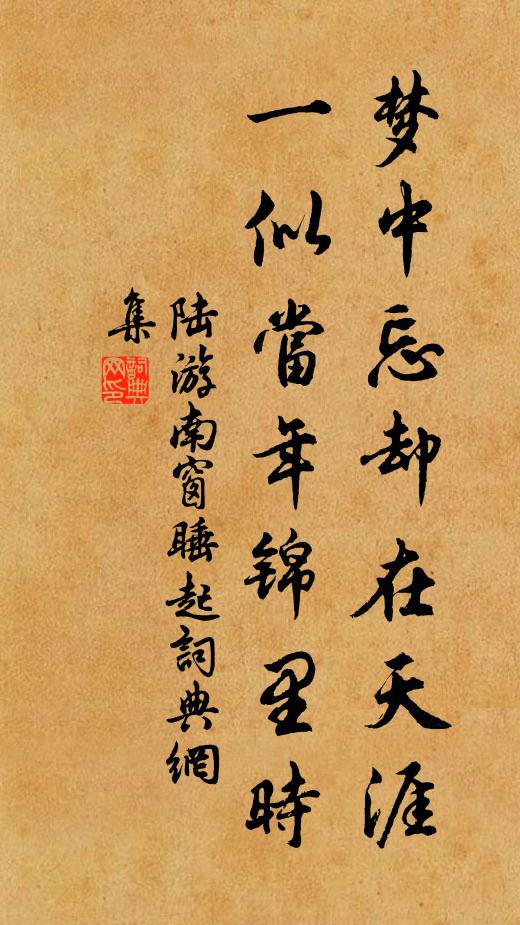 梦中忘却在天涯
一似當年锦里時
陆游南窗睡起詞典網
集
詞典网印